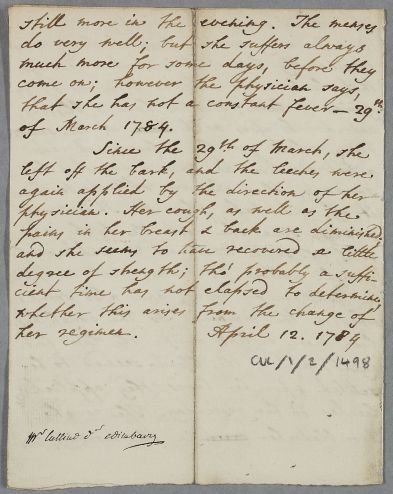 still more in the evening. The menses
do very well; but she suffers always
much more for some days, before they
come on; however the physician says,
that she has not a constant fever — 29th
of March 1784.
Since the 29th of March, she
left off the bark, and the leeches were
again applied by the direction of her
physician. Her cough, as well as the
pains in her breast & back are diminished
and she seems to have recovered a little
degree of strength; tho' probably a suffi-
cient time has not elapsed to determine,
whether this arises from the change of
her regimen. April 12. 1784
CUL/1/2/1498